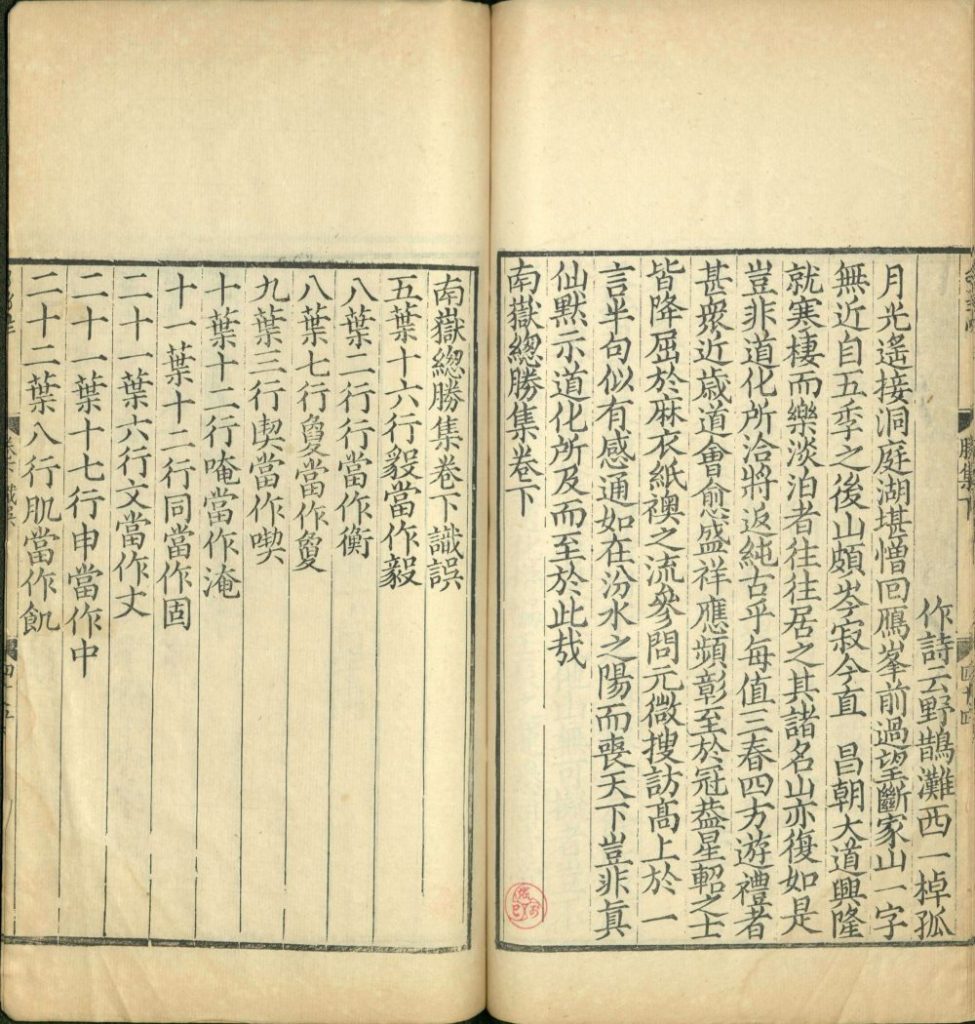 作詩云野鵲灘西一棹孤
月光遙接洞庭湖堪憎回鴈峯前過望斷家山一字
無近自五季之後山頗岑寂今直　昌朝大道興隆
就寒棲而樂淡泊者往往居之其諸名山亦復如是
豈非道化所洽將返純古乎每值三春四方遊禮者
甚衆近歲道會愈盛祥應頻彰至於冠葢星軺之士
皆降屈於麻衣紙襖之流參問元微搜訪髙上於一
言半句似有感通如在汾水之陽而喪天下豈非眞
仙默示道化所及而至於此哉
南嶽緫勝集卷下
南嶽緫勝集卷下識誤
五葉十六行毅當作毅
八葉二行行當作衡
八葉七行敻當作敻
九葉三行㓞當作喫
十葉十二行唵當作淹
十一葉十二行同當作固
二十一葉六行文當作丈
二十一葉十七行申當作中
二十二葉八行肌當作飢
勝集下